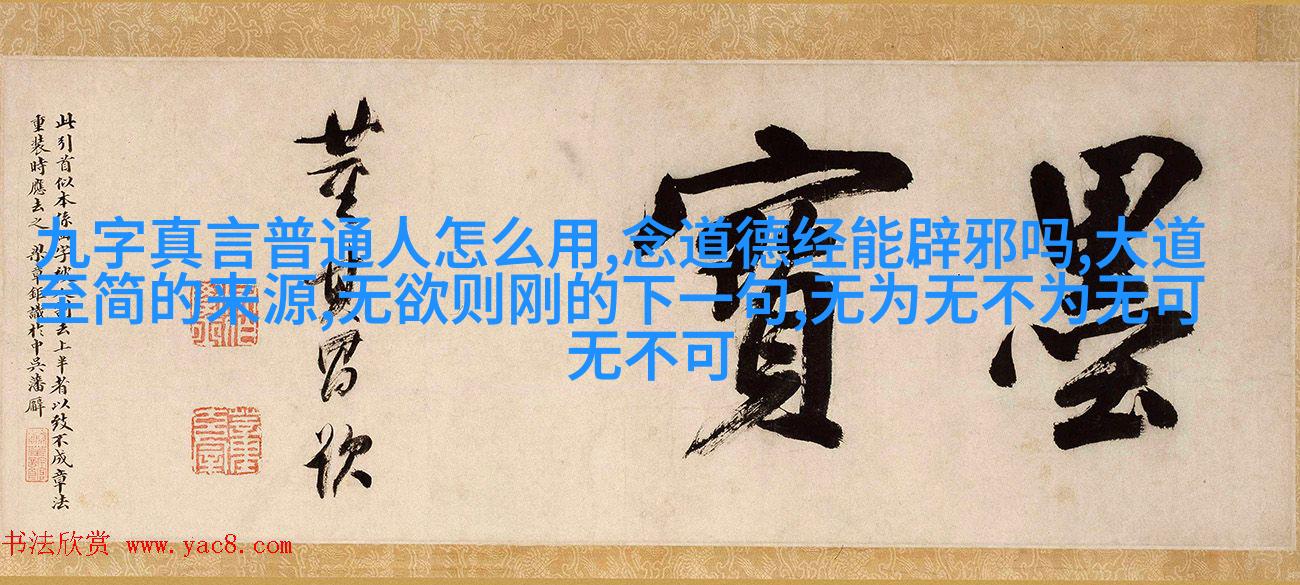 墨寶
董其昌
此引首似本係字去上半者以致不成章法
重裝時應去之 梁章鉅識於中吳藩廨
九字真言普通人怎么用,念道德经能辟邪吗,大道
至简的来源,无欲则刚的下一句,无为无不为无可
无不可
书法欣赏 www.yac8.com